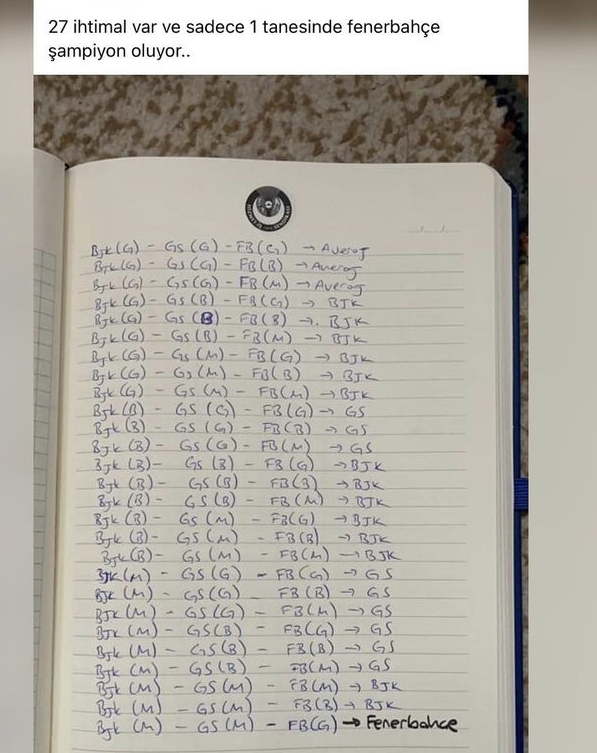 27 ihtimal var ve sadece 1 tanesinde fenerbahçe
şampiyon oluyor..
Bjk (G) - GS (G) - FB (G) → Averaj
Bjk (G) - GS (G) - FB (B) → Averaj
Bjk (G) - GS (G) - FB (M) → Averaj
Bjk (G) - GS (B) - FB (G) → BJK
Bjk (G) - GS (B) - FB (B) → BJK
Bjk (G) - GS (B) - FB (M) → BJK
Bjk (G) - GS (M) - FB (G) → BJK
Bjk (G) - GS (M) - FB (B) → BJK
Bjk (G) - GS (M) - FB (M) → BJK
Bjk (B) - GS (G) - FB (G) → GS
Bjk (B) - GS (G) - FB (B) → GS
Bjk (B) - GS (G) - FB (M) → GS
Bjk (B) - GS (B) - FB (G) → BJK
Bjk (B) - GS (B) - FB (B) → BJK
Bjk (B) - GS (B) - FB (M) → BJK
Bjk (B) - GS (M) - FB (G) → BJK
Bjk (B) - GS (M) - FB (B) → BJK
Bjk (B) - GS (M) - FB (M) → BJK
Bjk (M) - GS (G) - FB (G) → GS
Bjk (M) - GS (G) FB (B) → GS
Bjk (M) - GS (G) - FB (M) → GS
Bjk (M) - GS (B) - FB (G) → GS
Bjk (M) - GS (B) - FB (B) → GS
Bjk (M) - GS (B) - FB (M) → GS
Bjk (M) - GS (M) - FB (M) → BJK
Bjk (M) - GS (M) - FB (B) → BJK
Bjk (M) - GS (M) - FB (G) → Fenerbahce